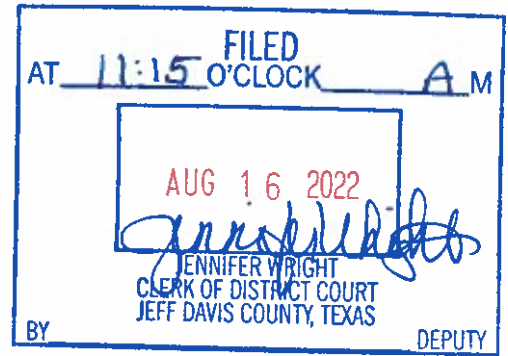 FILED
AT 11:15 O'CLOCK A M
AUG 16 2022
Jennifer Wright
JENNIFER WRIGHT
CLERK OF DISTRICT COURT
JEFF DAVIS COUNTY, TEXAS
BY DEPUTY